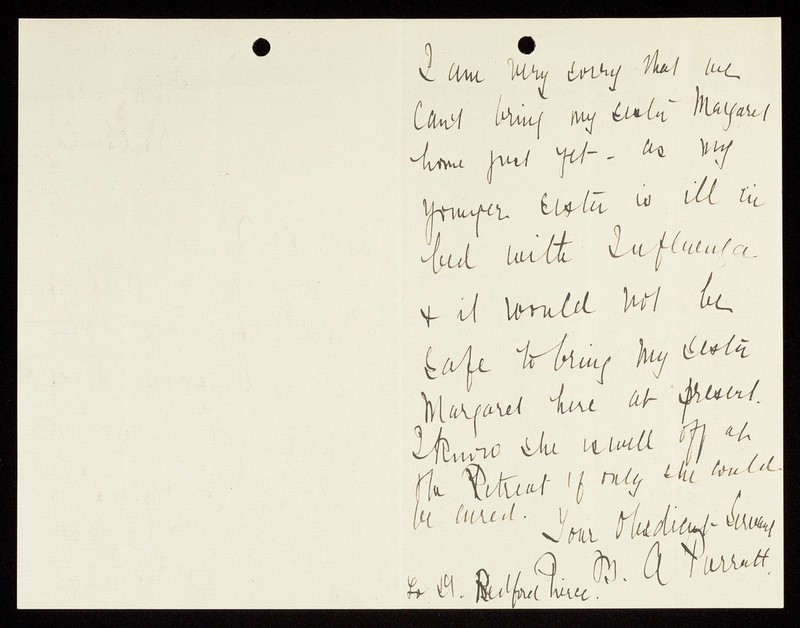 I am very sorry that we
cant bring my sister Margaret
home just yet - as my
younger sister is ill in
bed with Influenza
& it would not be
safe to bring my sister
Margaret here at present.
I know she is well off at
the Retreat if only she could
be cured.
Your Obedient Servant
M. A Parratt.
To Dr. Bedford Pierce.